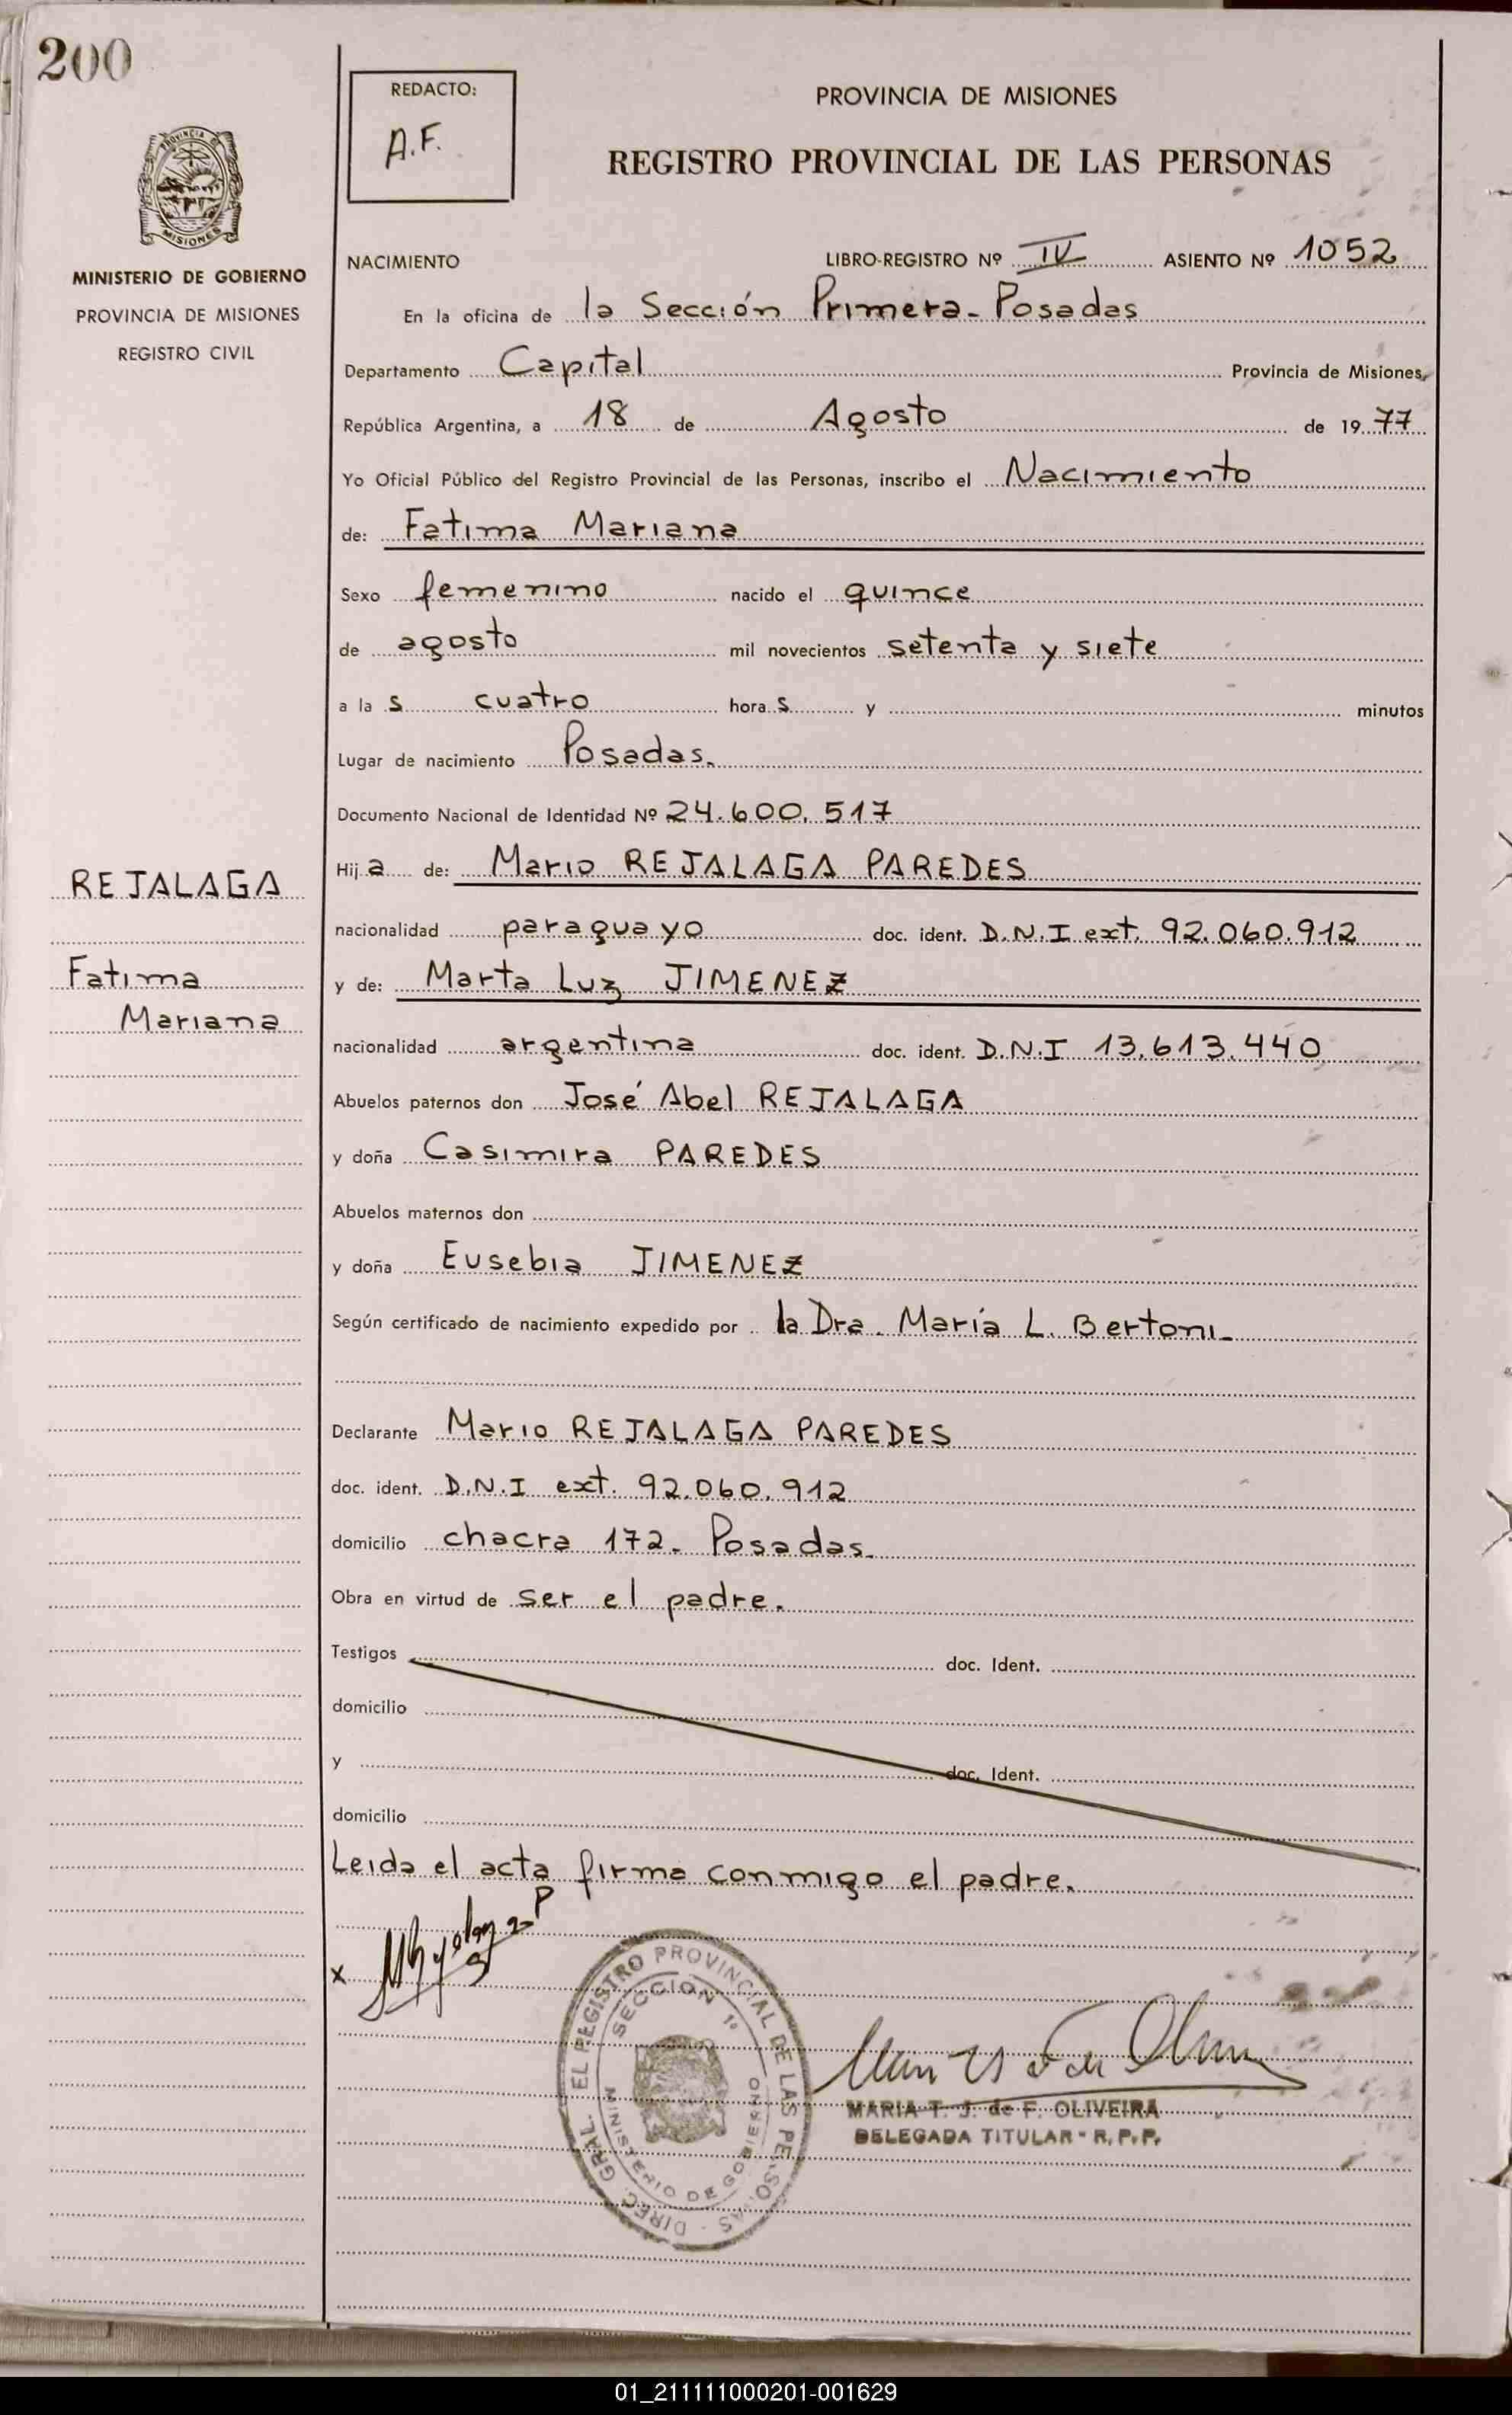 200
REDACTO:
A.F.
PROVINCIA DE MISIONES
REGISTRO PROVINCIAL DE LAS PERSONAS
PROVINCIA DE
MISIONES
MINISTERIO DE GOBIERNO
PROVINCIA DE MISIONES
REGISTRO CIVIL
NACIMIENTO LIBRO-REGISTRO Nº IV ASIENTO Nº 1052
En la oficina de la Sección Primera - Posadas
Departamento Capital Provincia de Misiones,
República Argentina, a 18 de Agosto de 1977
Yo Oficial Público del Registro Provincial de las Personas, inscribo el Nacimiento
de: Fatima Mariana
Sexo femenino nacido el quince
de agosto mil novecientos setenta y siete
a la s cuatro hora s y minutos
Lugar de nacimiento Posadas.
Documento Nacional de Identidad Nº 24.600.517
REJALAGA
Fatima
Mariana
Hij a de: Mario REJALAGA PAREDES
nacionalidad paraguayo doc. ident. D.N.I ext. 92.060.912
y de: Marta Luz JIMENEZ
nacionalidad argentina doc. ident. D.N.I 13.613.440
Abuelos paternos don José Abel REJALAGA
y doña Casimira PAREDES
Abuelos maternos don
y doña Eusebia JIMENEZ
Según certificado de nacimiento expedido por la Dra. María L. Bertoni-
Declarante Mario REJALAGA PAREDES
doc. ident. D.N.I ext. 92.060.912
domicilio chacra 172- Posadas-
Obra en virtud de ser el padre.
Testigos doc. Ident.
domicilio
y doc. Ident.
domicilio
Leida el acta firma conmigo el padre.
x
DIREC. GRAL. EL REGISTRO PROVINCIAL DE LAS PERSONAS
SECCION 1º
MINISTERIO DE GOBIERNO
MARIA T. J. de F. OLIVEIRA
DELEGADA TITULAR - R.P.P.
01_211111000201-001629